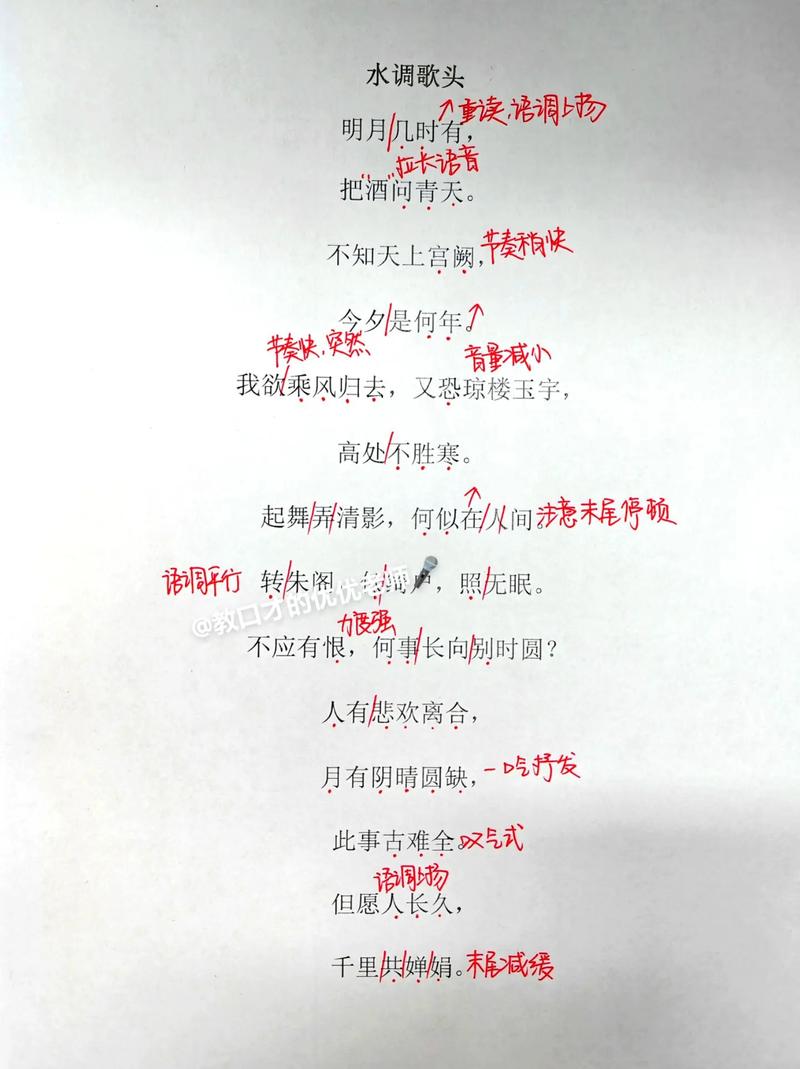 水调歌头
重读,语调上扬
明月/几时有,
拉长语音
把酒问青天。
不知天上宫阙, 节奏稍快
今夕/是何年。
节奏快,突然 音量减小
我欲/乘风归去,又恐琼楼玉宇,
高处/不胜寒。
起舞/弄/清影,何似在/人/间。注意末尾停顿
语调平行 转/朱阁 户,照/无眠。
@教口才的优优老师
力度强
不应有恨,何事/长向/别时圆?
人有/悲欢离合,
月有阴晴圆缺,一吟抒发
此事古难全。叹气式
语调上扬
但愿人长久,
千里/共/婵/娟。末尾减缓